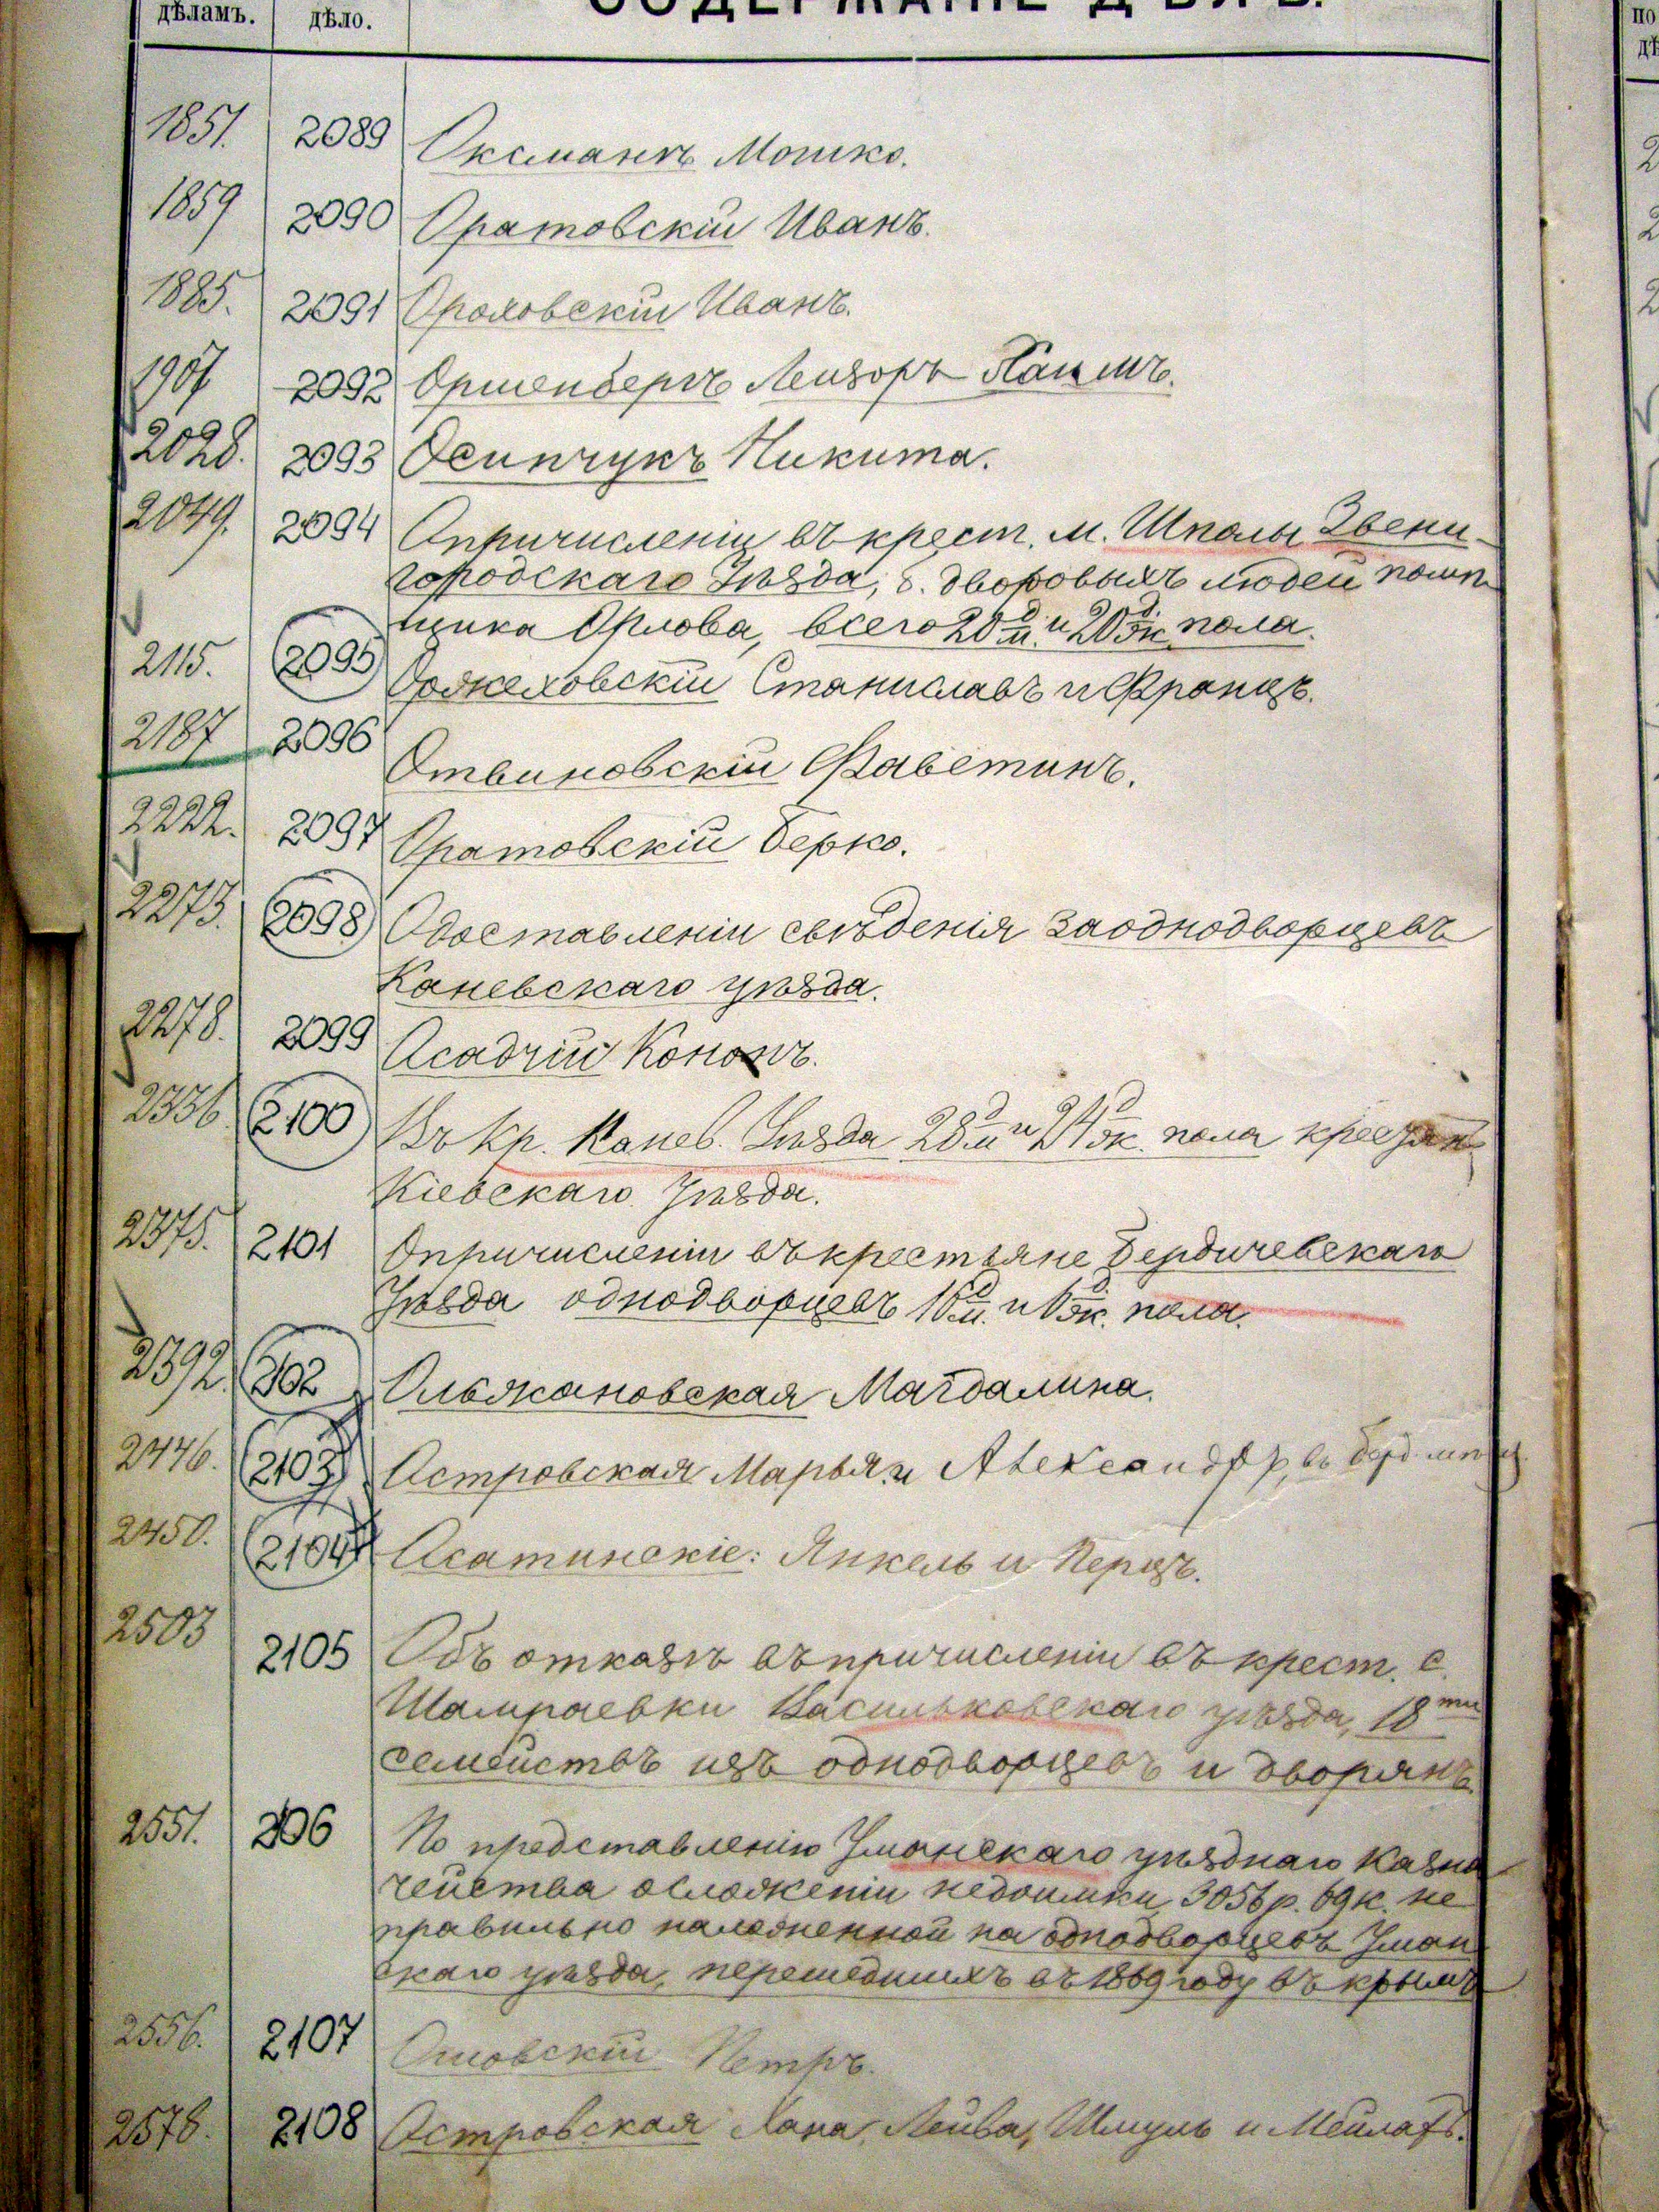 дѣламъ. дѣло. СОДЕРЖАНІЕ ДѢЛЪ.
1851. 2089 Оксманъ Мошко.
1859 2090 Оратовскій Иванъ.
1885. 2091 Ороховскій Иванъ.
1907 2092 Оршенбергъ Лейзоръ Хаимъ.
2028. 2093 Осипчукъ Никита.
2049. 2094 О причисленіи въ крест. м. Шполы Звени-
городскаго Уѣзда, б. дворовыхъ людей помѣ
щика Орлова, всего 20 д. м. и 20 д. ж. пола.
2115. 2095 Оржеховскій Станиславъ и Францъ.
2187 2096 Отвиновскій Фаветинъ.
2222. 2097 Оратовскій Берко.
2273. 2098 О доставленіи свѣденія за однодворцевъ
Каневскаго уѣзда.
2278. 2099 Осадчій Кононъ.
2336 2100 Въ кр. Канев. Уѣзда 28 д. м. и 24 д. ж. пола крестян
Кіевскаго Уѣзда.
2375. 2101 О причисленіи въ крестьяне Бердичевскаго
Уѣзда однодворцевъ д. м. и д. ж. пола.
2392. 2102 Ольжановская Магдалина.
2446. 2103 Островская Марья и Александр, въ
2450. 2104 Осатинскіе: Янкель и Перцъ.
2503 2105 Объ отказѣ въ причисленіи въ крест. с.
Шамраевки Васильковскаго уѣзда, 18ти
семействъ изъ однодворцевъ и дворянъ.
2551. 2106 По представленію Уманскаго уѣзднаго Казна
чейства о сложеніи недоимки 3056 р. 69 к. не
правильно наложенной на однодворцевъ Уман
скаго уѣзда, перешедшихъ въ 1869 году въ крымъ
2556. 2107 Ошовскій Петръ.
2578. 2108 Островская Хана, Лейва, Шмуль и Мейлахъ.